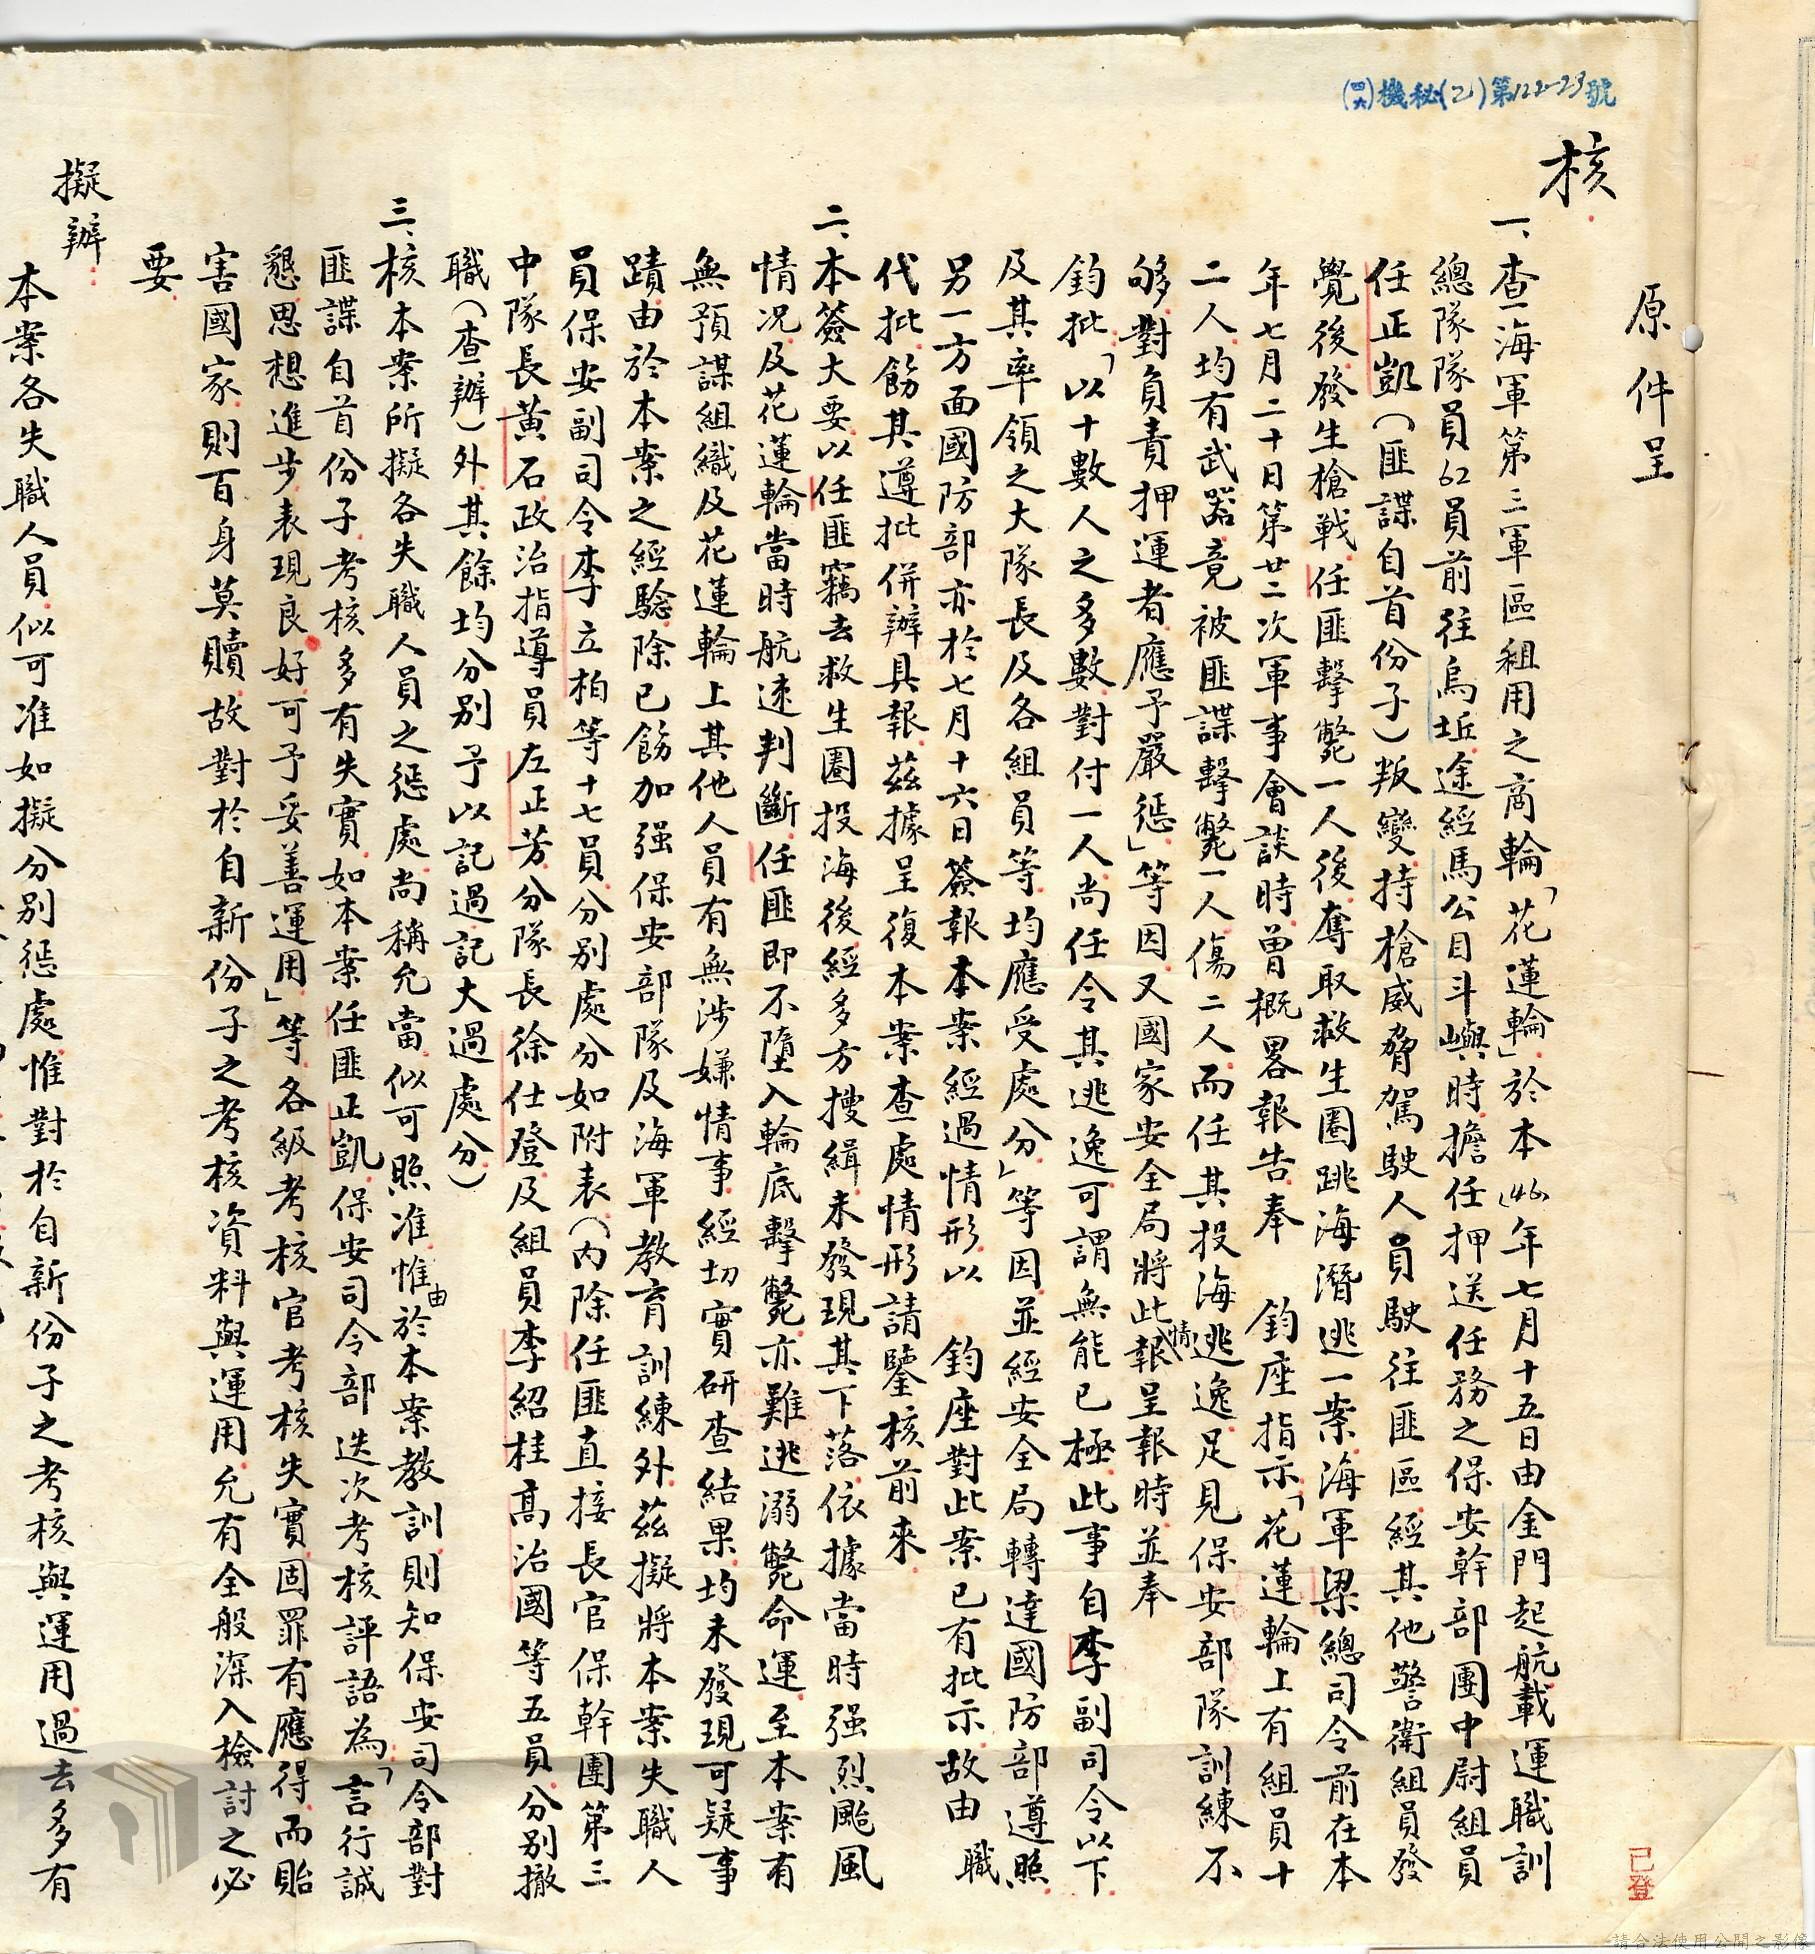 (四六)機秘(乙)第122-23號
原件呈
核
一、查海軍第三軍區租用之商輪「花蓮輪」於本(46)年七月十五日由金門起航載運職訓
總隊隊員62員前往烏坵途經馬公目斗嶼時擔任押送任務之保安幹部團中尉組員
任正凱(匪諜自首份子)叛變持槍威脅駕駛人員駛往匪區經其他警衛組員發
覺後發生槍戰任匪擊斃一人後奪取救生圈跳海潛逃一案海軍梁總司令前在本
年七月二十日第廿二次軍事會談時曾概畧報告奉　鈞座指示「花蓮輪上有組員十
二人均有武器竟被匪諜擊斃一人傷二人而任其投海逃逸足見保安部隊訓練不
够對負責押運者應予嚴懲」等因又國家安全局將此情報呈報時並奉
鈞批「以十數人之多數對付一人尚任令其逃逸可謂無能已極此事自李副司令以下
及其率領之大隊長及各組員等均應受處分」等因並經安全局轉達國防部遵照
另一方面國防部亦於七月十六日簽報本案經過情形以　鈞座對此案已有批示故由　職
代批飭其遵批併辦具報茲據呈復本案查處情形請鑒核前來
二、本簽大要以任匪竊去救生圈投海後經多方搜緝未發現其下落依據當時强烈颱風
情況及花蓮輪當時航速判斷任匪即不墮入輪底擊斃亦難逃溺斃命運至本案有
無預謀組織及花蓮輪上其他人員有無涉嫌情事經切實研查結果均未發現可疑事
蹟由於本案之經驗除已飭加强保安部隊及海軍教育訓練外茲擬將本案失職人
員保安副司令李立柏等十七員分別處分如附表(內除任匪直接長官保幹團第三
中隊長黃石政治指導員左正芳分隊長徐仕登及組員李紹桂高治國等五員分別撤
職(查辦)外其餘均分別予以記過記大過處分)
三、核本案所擬各失職人員之懲處尚稱允當似可照准惟由於本案教訓則知保安司令部對
匪諜自首份子考核多有失實如本案任匪正凱保安司令部迭次考核評語為「言行誠
懇思想進步表現良好可予妥善運用」等各級考核官考核失實固罪有應得而貽
害國家則百身莫贖故對於自新份子之考核資料與運用允有全般深入檢討之必
要
擬辦
本案各失職人員似可准如擬分別懲處惟對於自新份子之考核與運用過去多有
已登
請合法使用公開之影像